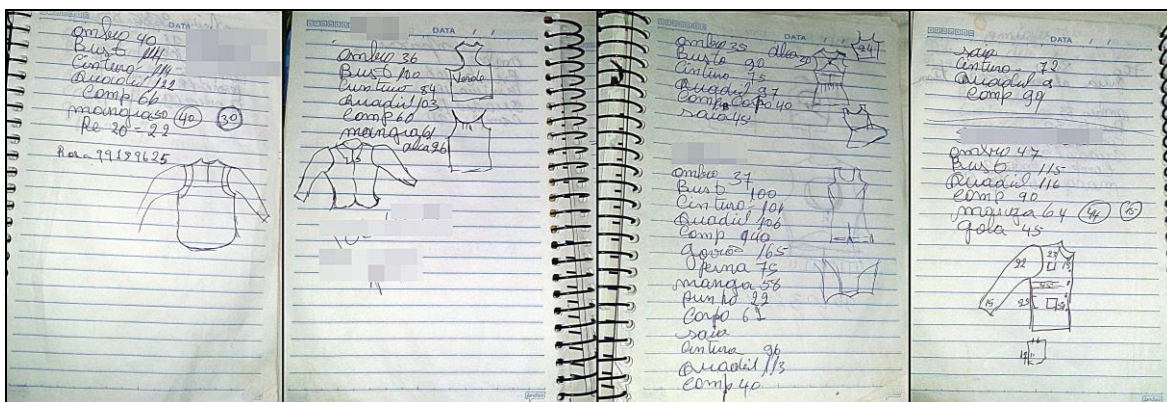 DATA / /
ombro 40
Busto 114
Cintura 114
Quadril 122
Comp 66
mangas 50 40 30
Re 20-22
99199625
DATA / /
ombro 36
Busto 100
Cintura 84
Quadril 103
Comp 60
manga 61
alca 26
Verde
DATA / /
ombro 35 alca 30
Busto 90
Cintura 75
Quadril 97
Comp Corpo 40
saia 45
ombro 37
Busto 100
Cintura 101
Quadril 106
Comp
165
perna 75
manga 58
punho 22
Corpo 61
saia
Cintura 96
Quadril 113
Comp 40
DATA / /
saia
Cintura 72
Quadril
Comp 99
ombro 47
Busto 115
Quadril 116
Comp 90
manga 64
gola 45